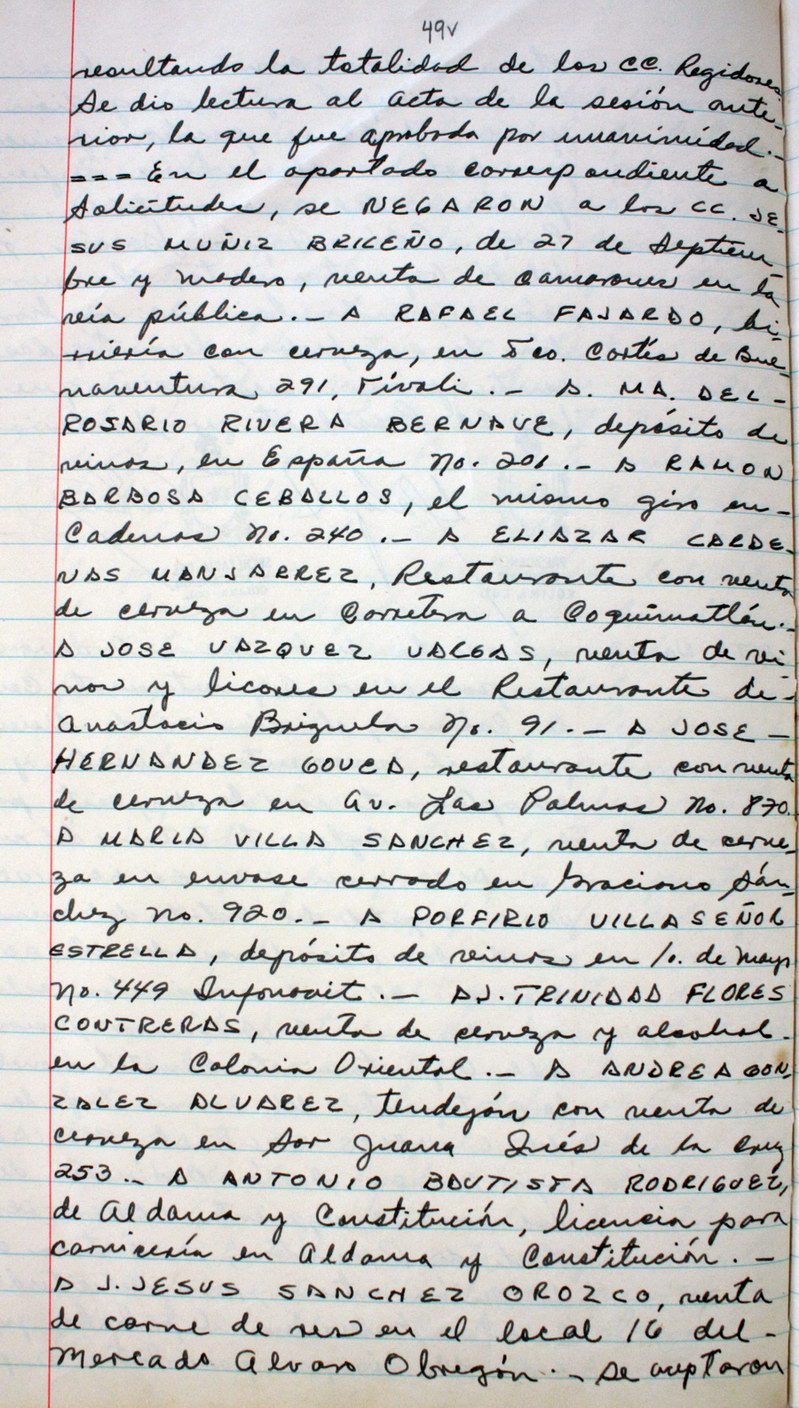 49v
resultando la totalidad de los CC. Regidores.
Se dio lectura al acta de la sesión ante-
rior, la que fue aprobada por unanimidad.-
=== En el apartado correspondiente a
Solicitudes, se NEGARON a los CC. JE-
SUS MUÑIZ BRICEÑO, de 27 de Septiem
bre y Madero, venta de camarones en la
vía pública.- A RAFAEL FAJARDO, bi-
rriería con cerveza, en Fco. Cortés de Bue-
naventura 291, Tívoli.- A. MA. DEL-
ROSARIO RIVERA BERNAVE, depósito de
vinos, en España No. 201.- A RAMON
BARBOSA CEBALLOS, el mismo giro en-
Cadenas No. 240.- A ELIAZAR CARDE-
NAS MANJARREZ, Restaurante con venta
de cerveza en Carretera a Coquimatlán.-
A JOSE VAZQUEZ VARGAS, venta de vi
nos y licores en el Restaurante de-
Anastacio Brizuela No. 91.- A JOSE-
HERNANDEZ GOVEA, restaurante con venta
de cerveza en Av. Las Palmas No. 870.
A MARIA VILLA SANCHEZ, venta de cerve-
za en envase cerrado en Graciano Sán-
chez No. 920.- A PORFIRIO VILLASEÑOR
ESTRELLA, depósito de vinos en 1o. de Mayo
No. 449 Infonavit.- A J. TRINIDAD FLORES
CONTRERAS, venta de cerveza y alcohol-
en la Colonia Oriental.- A ANDREA GON
ZALEZ ALVAREZ, tendejón con venta de
cerveza en Sor Juana Inés de la Cruz
253.- A ANTONIO BAUTISTA RODRIGUEZ,
de Aldama y Constitución, licencia para
carnicería en Aldama y Constitución.-
A J. JESUS SANCHEZ OROZCO, venta
de carne de res en el local 16 del-
Mercado Alvaro Obregón.- Se aceptaron